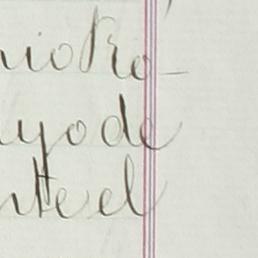 nio Ro-
yo de
nte el